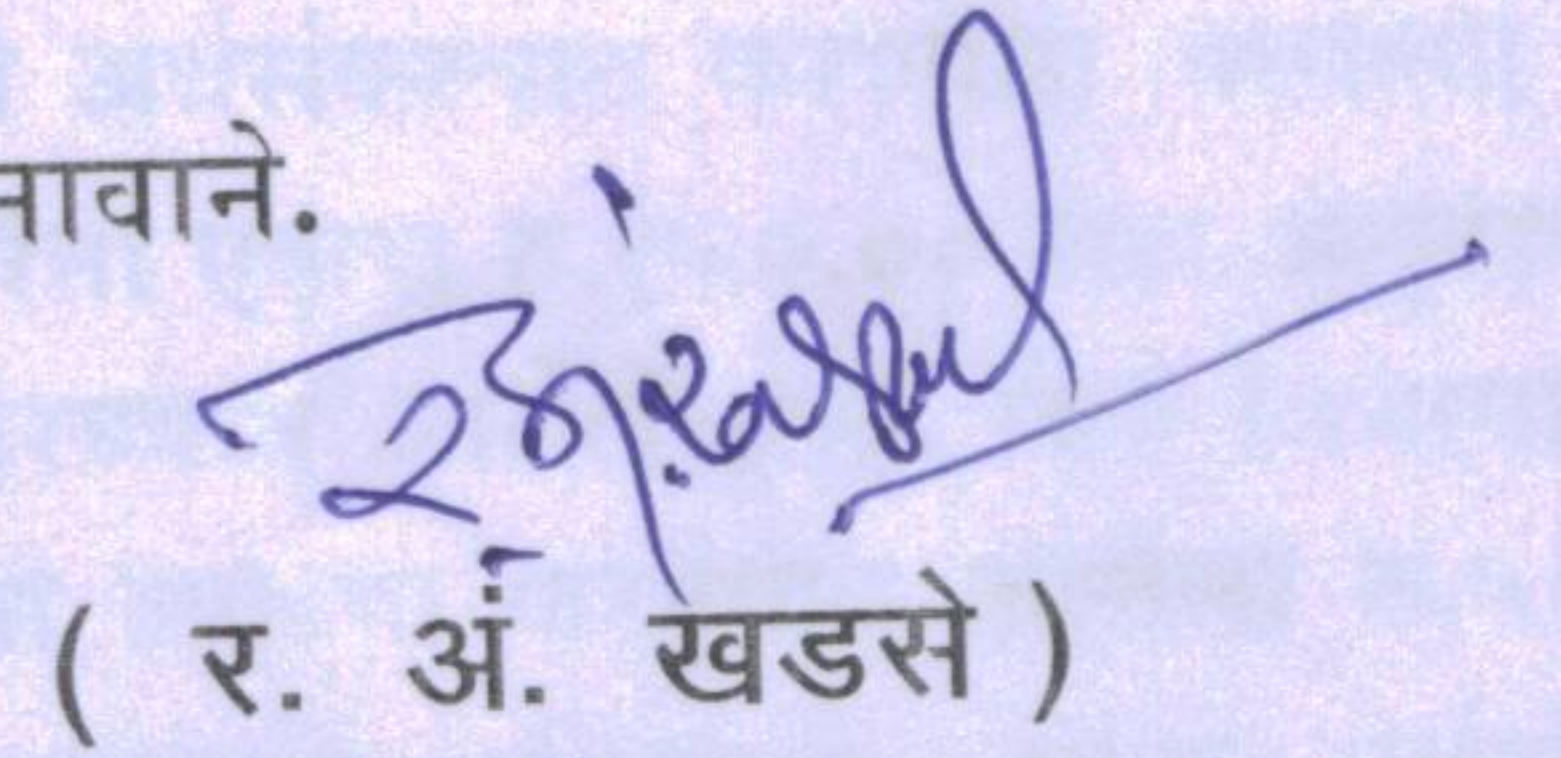 नावाने.
( र. अं. खडसे )